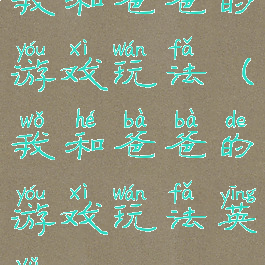 我和爸爸的
yóu xì wán fǎ
游戏玩法(
wǒ hé bà bà de
我和爸爸的
yóu xì wán fǎ yīng
游戏玩法英